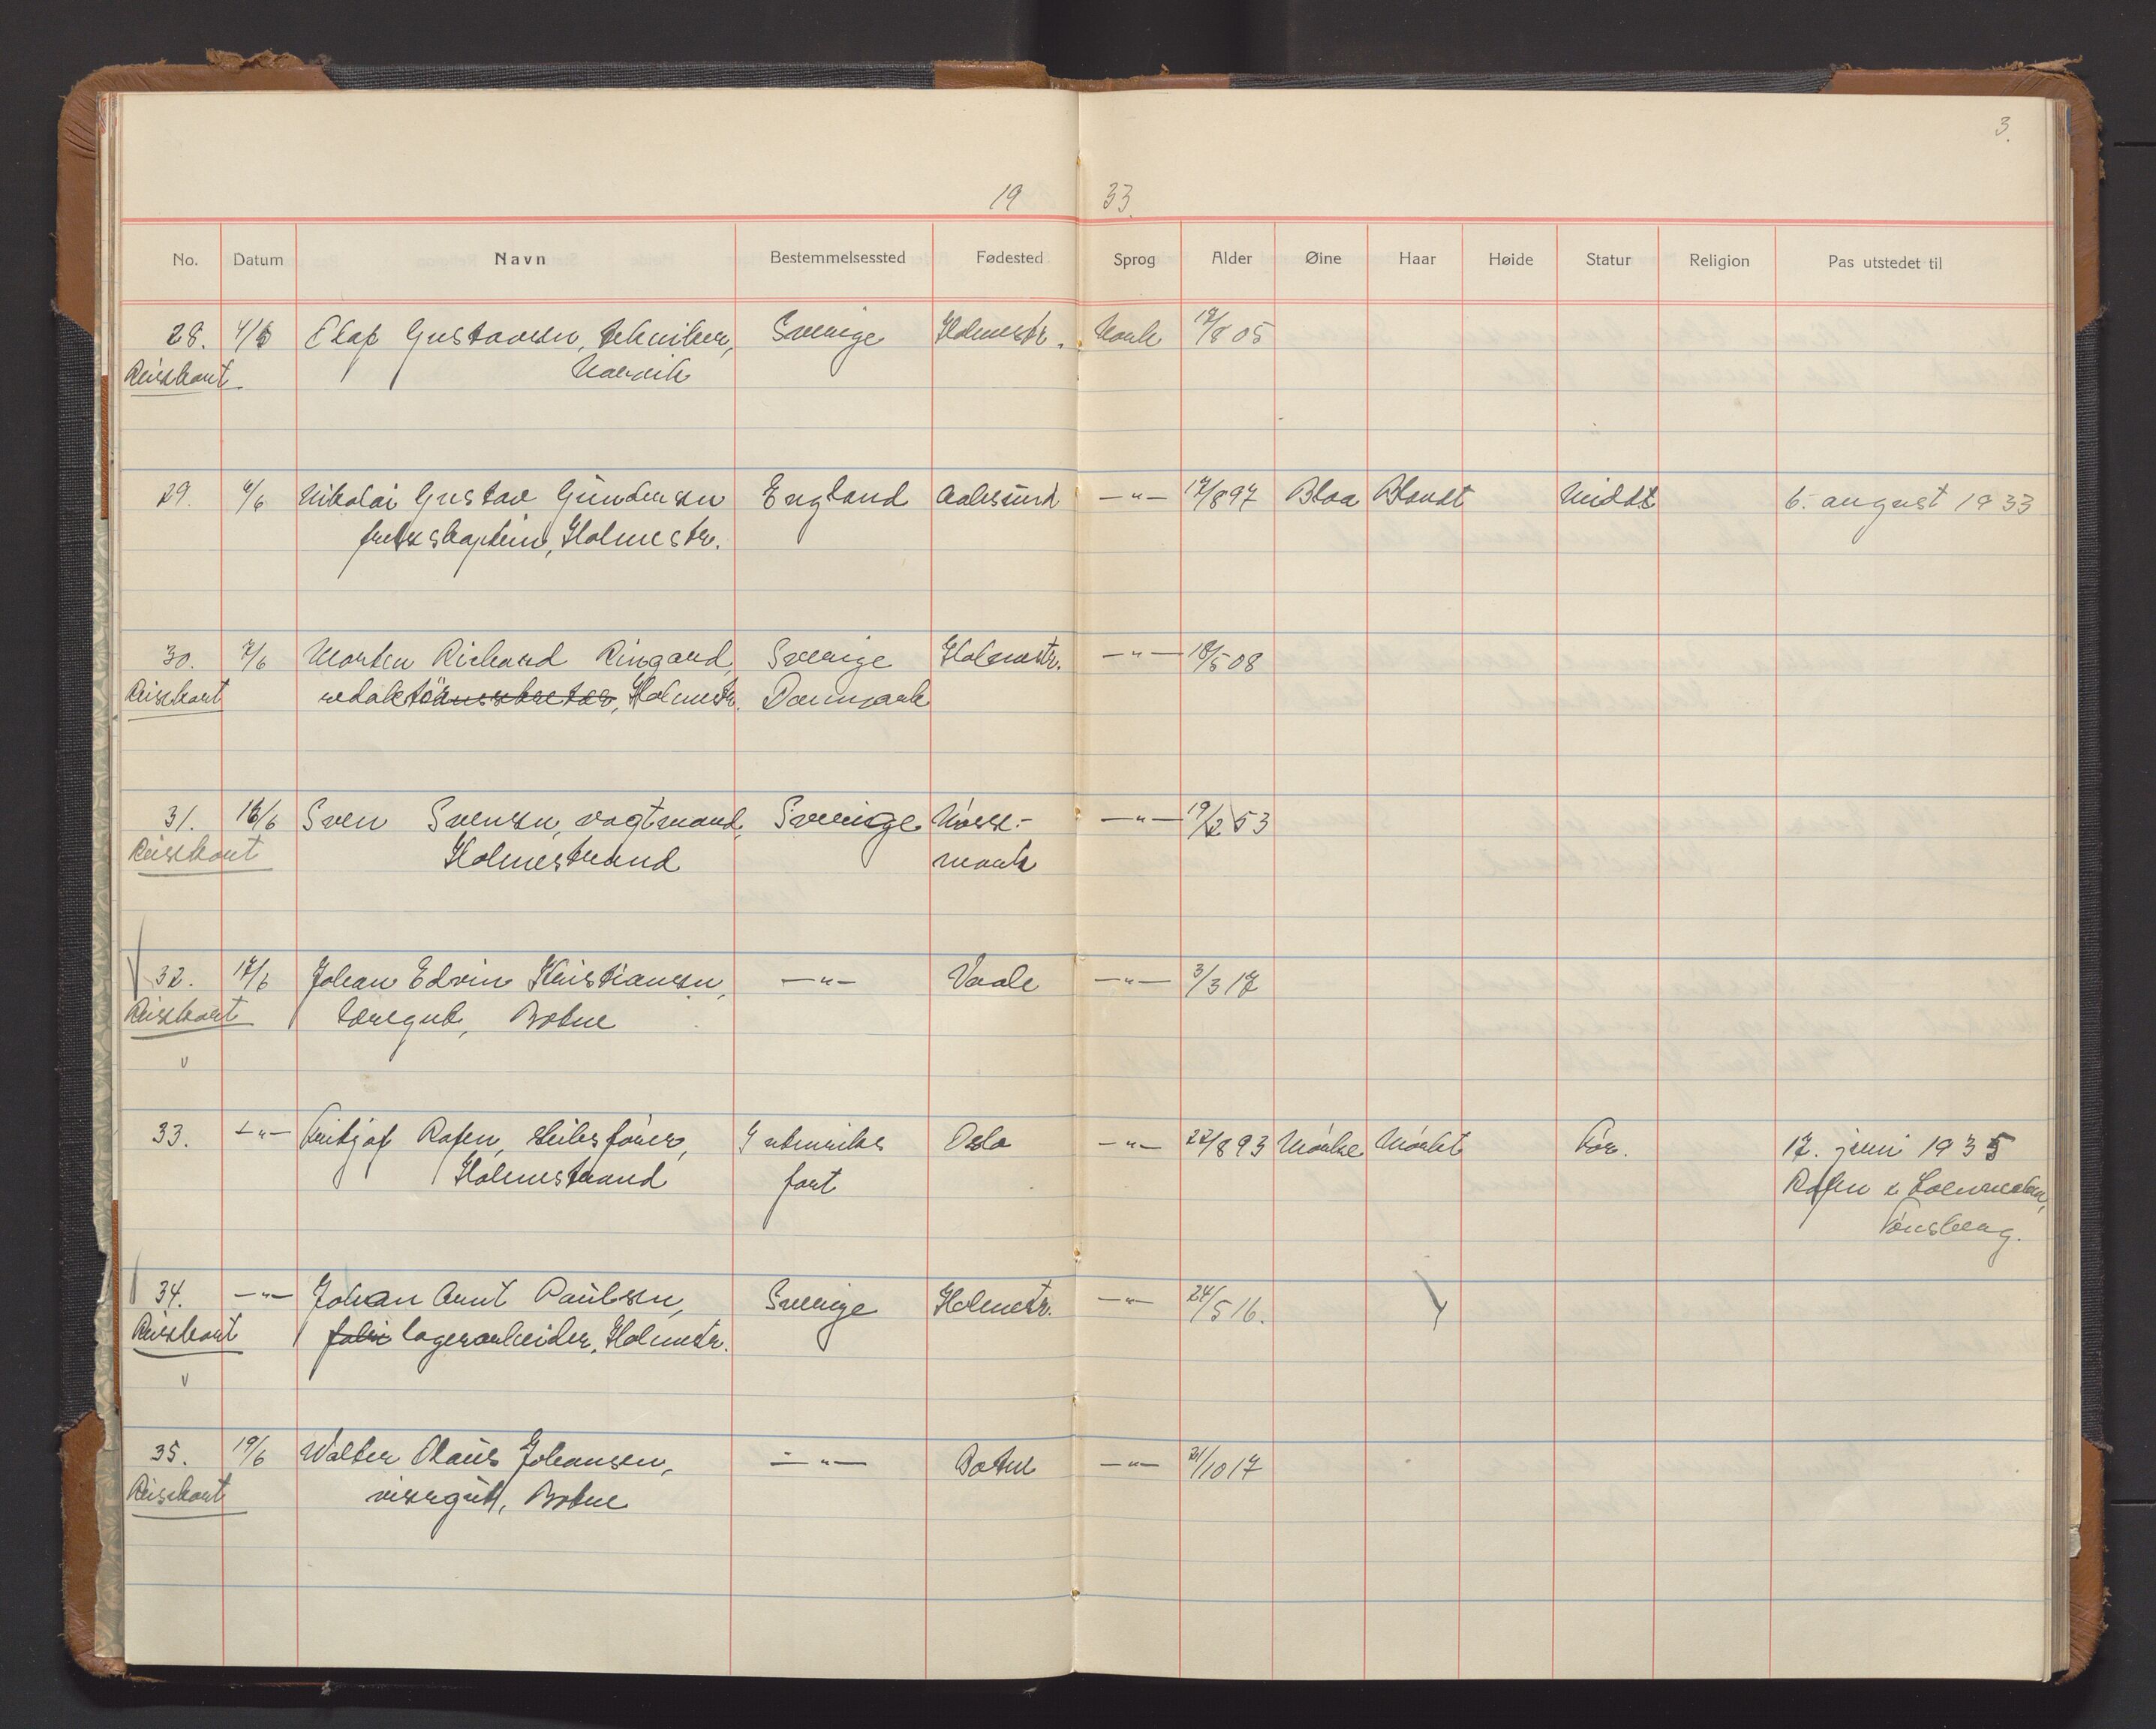 3.
19 33.
No. Datum Navn Bestemmelsessted Fødested Sprog Alder Øine Haar Høide Statur Religion Pas utstedet til
28. 4/6 Olaf Gustavsen, tekniker, Sverige Holmestr. Norsk 17/8 05
Reisekort Narvik
29. 6/6 Nikolai Gustav Gundersen England Aalesund —"— 17/8 97 Blaa Blondt Middels 6. august 1933
Holmestr.
30. 7/6 Morten Richard Ringard, Sverige Holmestr. —"— 18/5 08
Reisekort redaktør, Holmestr. Danmark
31. 16/6 Sven Svensen, vogtmand, Sverige Norsk-
—"— 19/2 53
Reisekort Holmestrand mark
32. 17/6 Johan Edvin Kristiansen, —"— Vaale —"— 3/3 17
Reisekort læregut, Botne
v
33. —"— Fritjof Rafen, skibsfører, I utenriks Oslo —"— 22/8 93 Mørke Mørkt Før. 17. juni 1935
Holmestrand fart Rafen & Loennechen,
Tønsberg.
34. —"— Johan Arnt Paulsen, Sverige Holmestr. —"— 24/5 16.
Reisekort fabri lagerarbeider, Holmestr.
v
35. 19/6 Walter Olaus Johansen, —"— Botne —"— 31/10 17
Reisekort visergutt, Botne